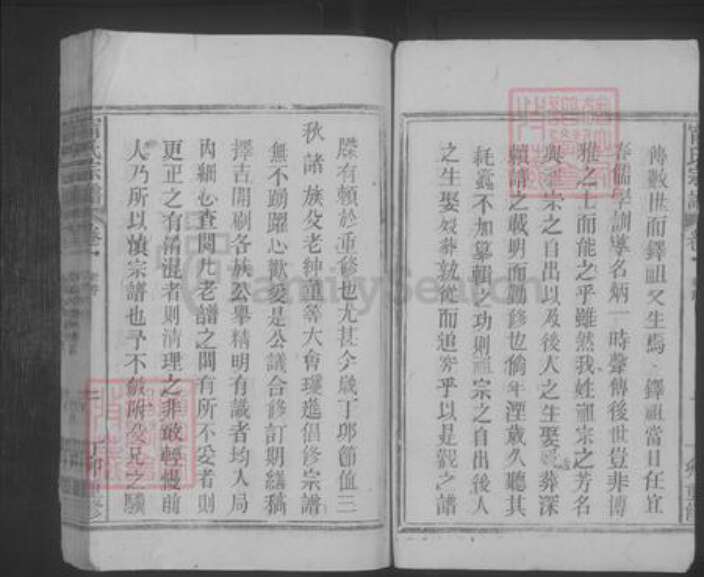 傳數世而鐸祖又生焉鐸祖當日任宜
春儒學訓導名炳一時聲傳後世豈非博
雅之士而能之乎雖然我姓祖宗之芳名
與祖宗之自出以及後人之生娶葬深
賴譜之載明而勤修也倘年湮歲久聽其
耗蠹不加纂輯之功則祖宗之自出後人
之生娶歿葬孰從而追究乎以是觀之譜
牒有賴於重修也尤甚今歲丁卯節值三
秋諸族父老紳董等大會璦進倡修宗譜
無不踴躍心歡爰是公議合修訂期繕稿
擇吉開刷各族公舉精明有識者均入局
內細心查閱凡老譜之間有所不妥者則
更正之有淆混者則清理之非敢輕慢前
人乃所以慎宗譜也予不敏隨父兄之驥
氏宗譜
卷
丁卯重修
FamilySearch